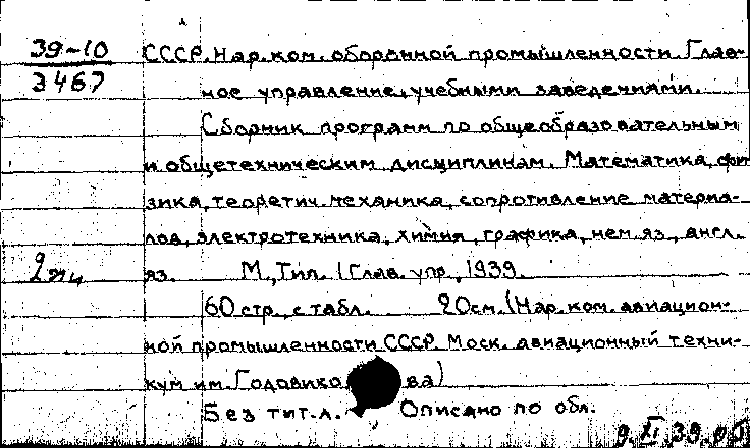 39-10 СССР. Нар. ком. оборонной промышленности. Глав-
3467 ное управление учебными заведениями.
Сборник программ по общеобразовательным
и общетехническим дисциплинам. Математика, фи
зика, теоретич. механика, сопротивление материа-
лов, электротехника, химия, графика, нем. яз., англ.
яз. М., Тип. 1 Глав. упр., 1939.
60 стр. с табл. 20 см. (Нар. ком. авиацион-
ной промышленности СССР. Моск. авиационный техни-
кум им. Годовикова)
Без тит. л. Описано по обл.
9. XI. 39.